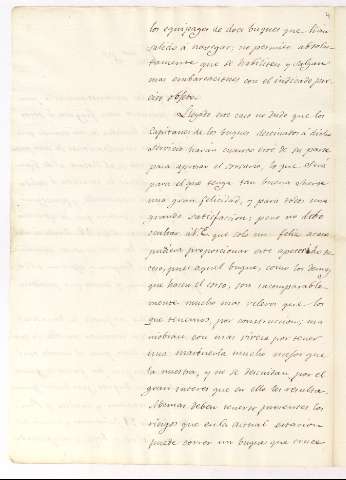 los equipages de doce buques que han
salido á navegar, no permite absolu-
tamente que se habiliten y salgan
mas embarcaciones con el indicado pre-
ciso objeto.
Llegado este caso no dudo que los
Capitanes de los buques destinados á dicho
servicio harán cuanto esté de su parte
para apresar el corsario, lo que será
para el que tenga tan buena suerte
una gran felicidad, y para todos una
grande satisfaccion; pero no debo
ocultar á V.E. que solo un feliz acaso
pudiera proporcionar este apetecido su-
ceso, pues aquel buque, como los demas
que hacen el corso, son incomparable-
mente mucho mas veleros que los
que tenemos, por construccion; ma-
niobran con mas viveza por tener
una marineria mucho mejor que
la nuestra, y no se descuidan por el
gran interes que en ello les resulta.
Ademas deben tenerse presentes los
riesgos que en la actual estacion
puede correr un buque que cruce